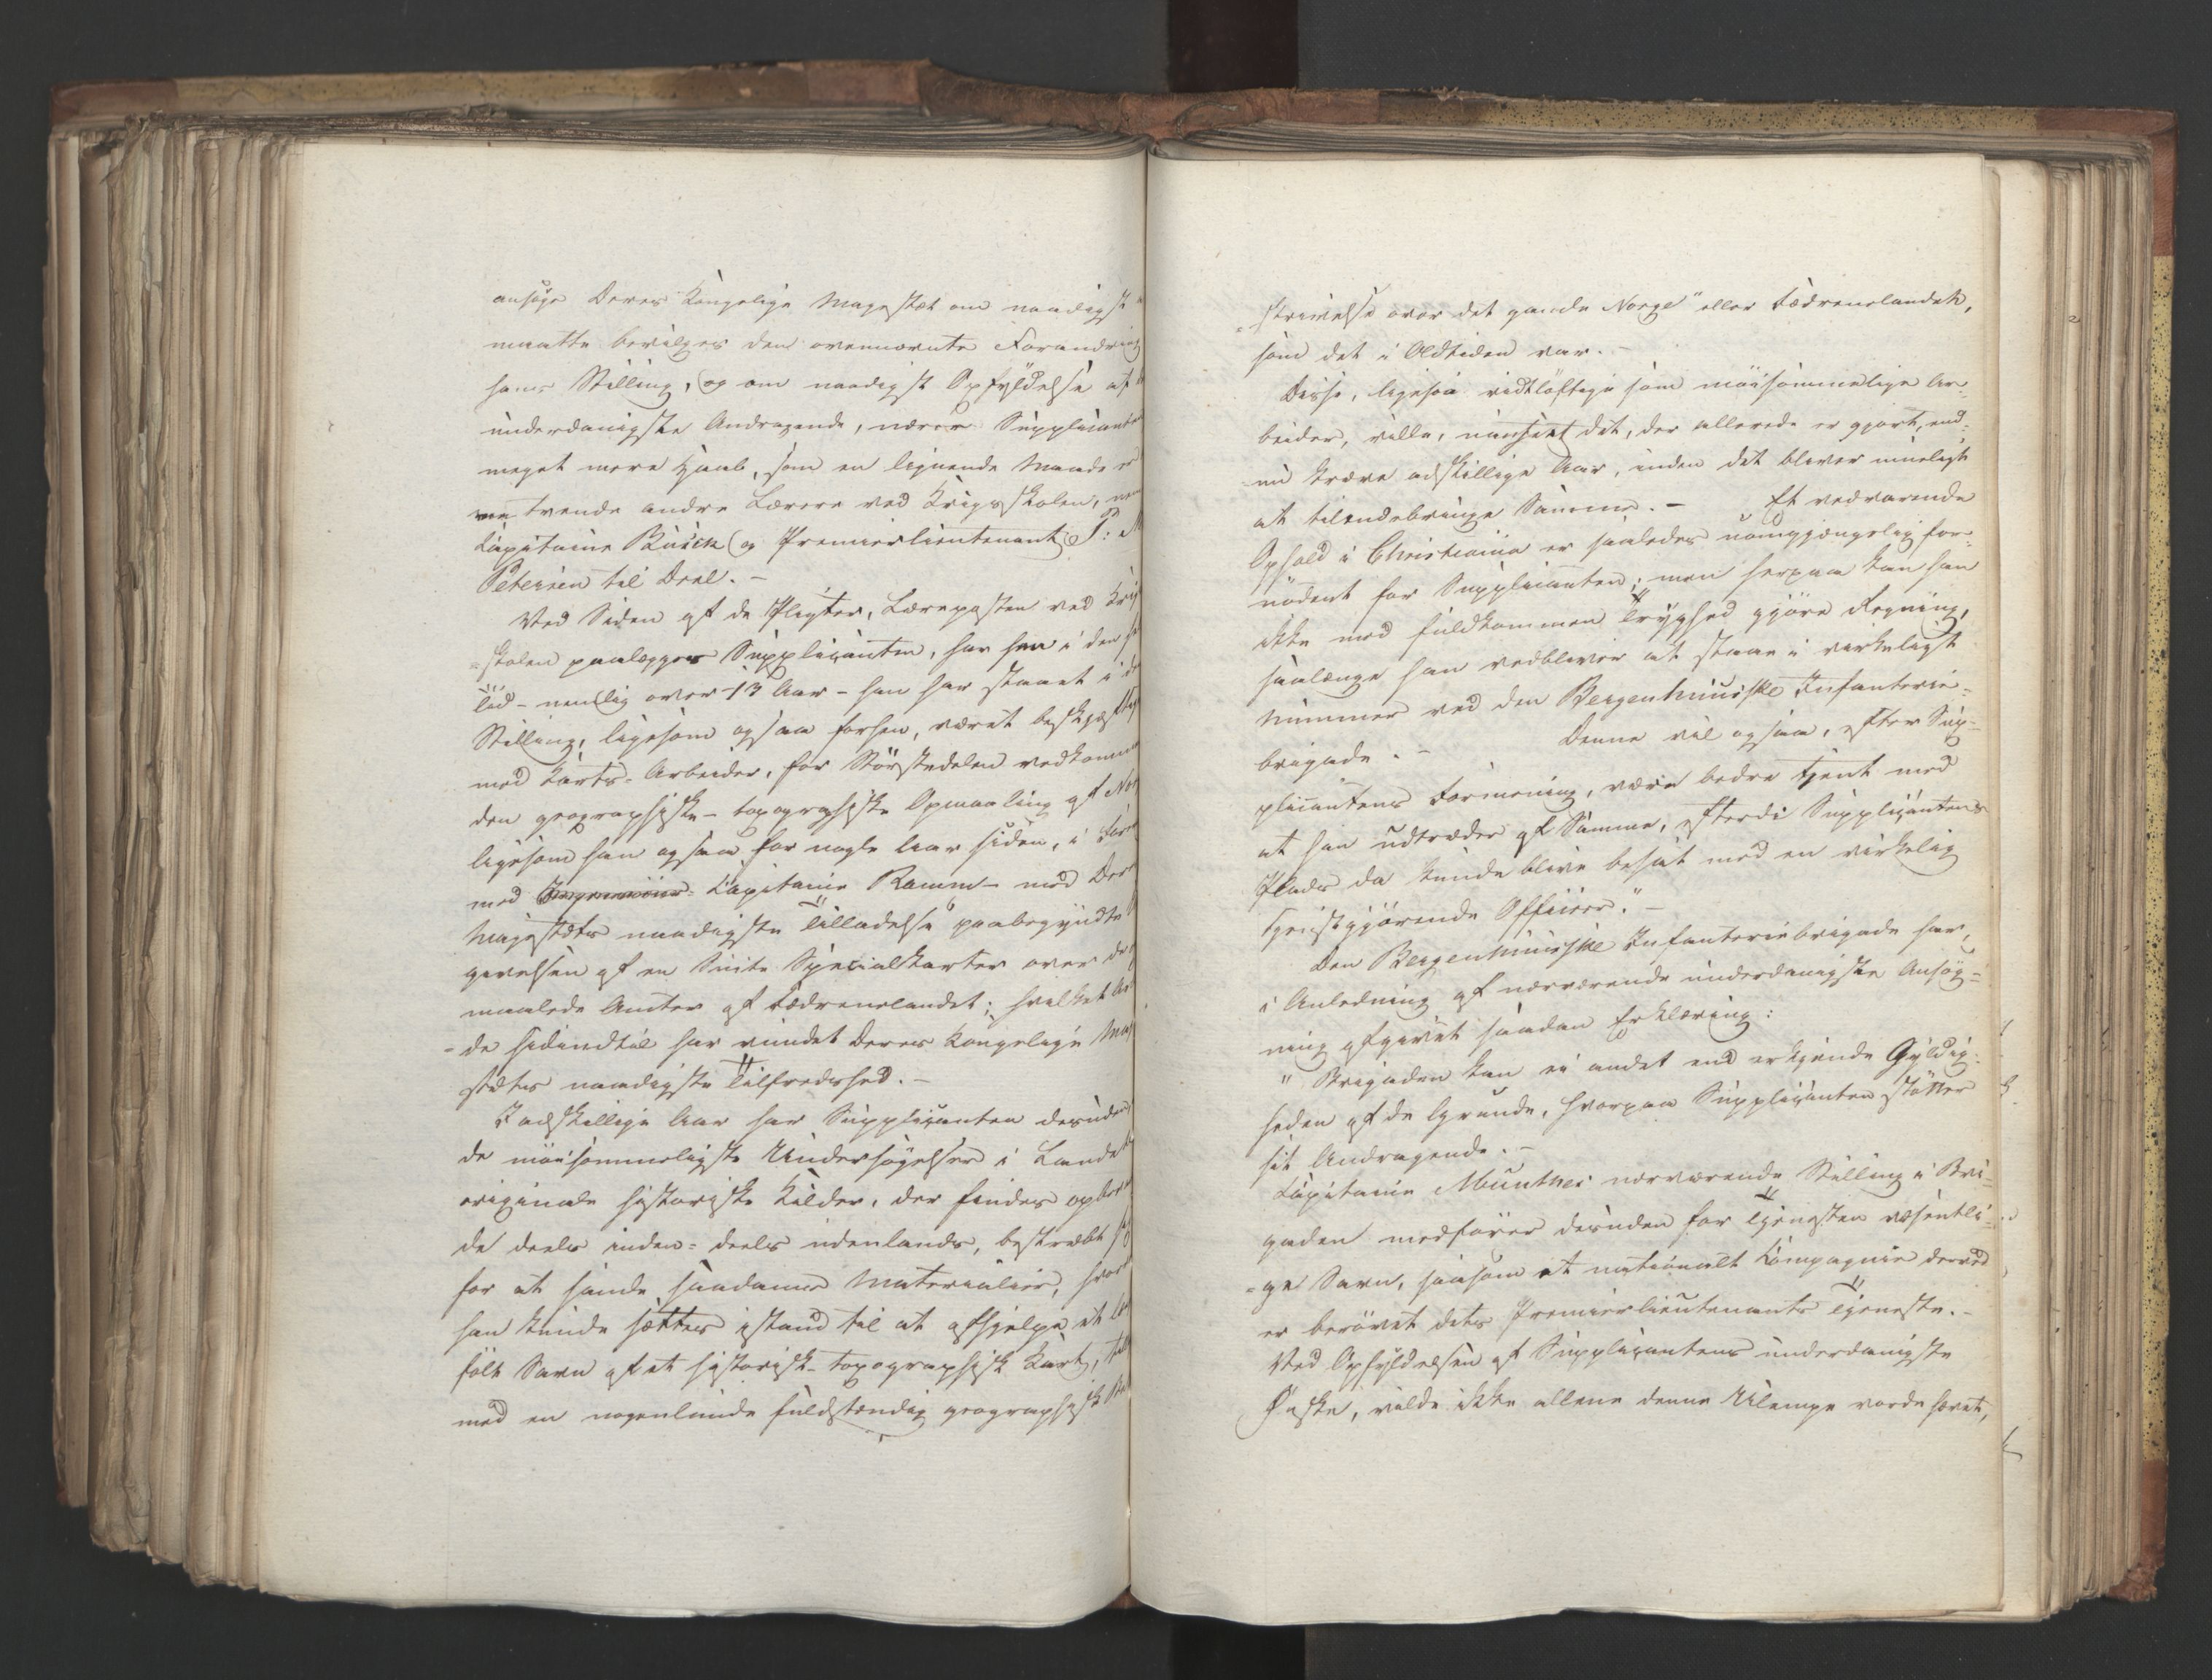 ansøge Deres Kongelige Majestæt om naadigst
maatte bevilges den ovennævnte Forandring
hans Stilling, og om naadigst Opfyldelse af
underdanigste Andragende, nærer Supplicanten
meget mere Haab, som en lignende Naade er
trende andre Lærere ved Krigsskolen,
Capitaine Butick og Premierlieutenant P: M
Petersen til Deel. –
Ved Siden af de Pligter, Læreposten ved Krigs
=skolen paalægger Supplicanten, har han i den
Tid – nemlig over 13 Aar – han har staaet i
Stilling, ligesom ogsaa forhen, været beskjæftig
med Karts-Arbeider, for Størstedelen vedkomm
den geographiske-topographiske Opmaaling af Nor
ligesom han ogsaa for nogle Aar siden, i
med Capitaine Ramm – med Deres
Majestæts naadigste Tilladelse paabegyndte
givelsen af en Suite Specialkarter over de
maalede Amter af Fædrenelandet; hvilket Ar
-de hidindtil har vundet Deres Kongelige Maj
stæts naadigste Tilfredshed. –
I adskillige Aar har Supplicanten desuden
de møisommeligste Undersøgelser i Landets
originale historiske Kilder, der findes opbeva
de deels inden- deels udenlands, bestræbt
for at samle saadanne Materialier, hvor
han kunde sættes istand til at afhjelpe et
følt Savn af et historisk-topographisk Kart,
med en nogenlunde fuldstændig geographisk Be
"skrivelse over det gamle Norge" eller Fædrenelandet,
som det i Oldtiden var. –
Disse, ligesaa vidtløftige som møisommelige Ar-
beider, ville, uanseet det, der allerede er gjort, end-
nu kræve adskillige Aar, inden det bliver mueligt
at tilendebringe Samme. – Et vedvarende
Ophold i Christiania er saaledes uomgjængelig for-
nødent for Supplicanten; men herpaa kan han
ikke med fuldkommen Tryghed gjøre Regning,
saalænge han vedbliver at staae i virkeligt
Nummer ved den Bergenhuusiske Infanterie-
brigade. – Denne vil ogsaa, efter Sup-
plicantens Formening, være bedre tjent med
at han udtræder af Samme, efterdi Supplicantens
Plads da kunde blive besat med en virkelig
tjenstgjørende Officeer." –
Den Bergenhuusiske Infanteriebrigade har,
i Anledning af nærværende underdanigste Ansøg-
ning afgivet saadan Erklæring:
"Brigaden kan ei andet end erkjende Gyldig-
heden af de Grunde, hvorpaa Supplicanten støtter
sit Andragende. –
Capitaine Munthes nærværende Stilling i Bri-
gaden medfører desuden for Tjenesten væsentli-
-ge Savn, saasom et nationalt Compagnie derved
er berøvet dets Premierlieutenants Tjeneste. –
Ved Opfyldelsen af Supplicantens underdanigste
Ønske, vilde ikke allene denne Ulempe vorde hævet,